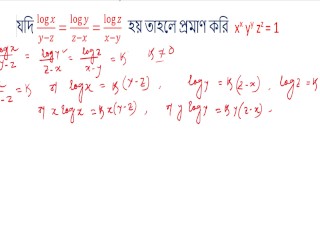 যদি log x / y−z = log y / z−x = log z / x−y হয় তাহলে প্রমাণ করি xˣ yʸ zᶻ = 1
log x / y−z = log y / z−x = log z / x−y = k   k ≠ 0
= k বা log x = k (y−z) , log y = k(z−x) , log z = k
বা x log x = k x(y−z) , বা y log y = k y(z−x)